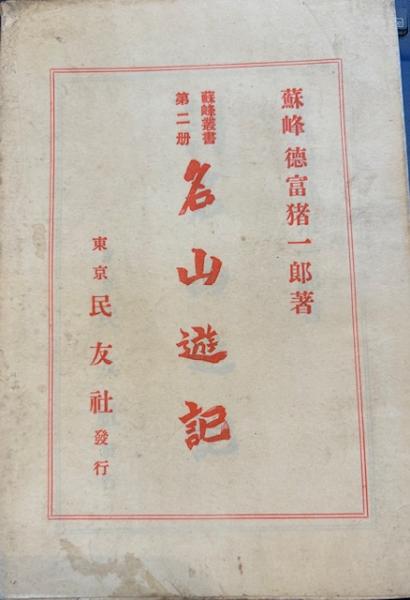 蘇峰 德富猪一郎著
蘇峰叢書
第二册
名山遊記
東京 民友社 發行